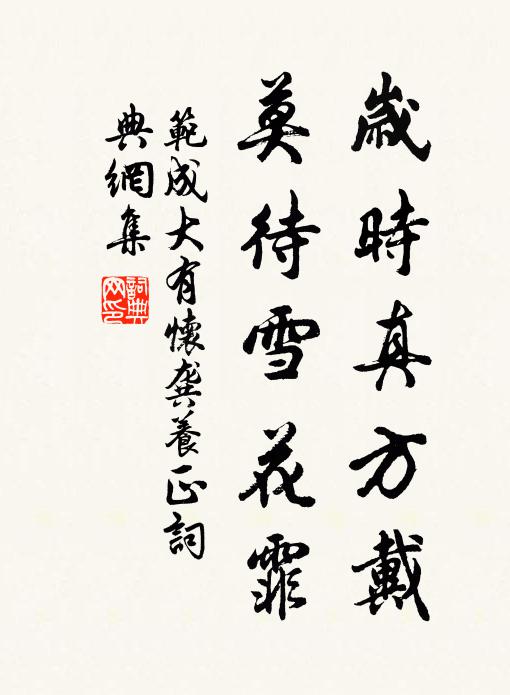 歲時真方戴
莫待雪花霏
範成大有懷龔養正詞
典網集
詞典網印